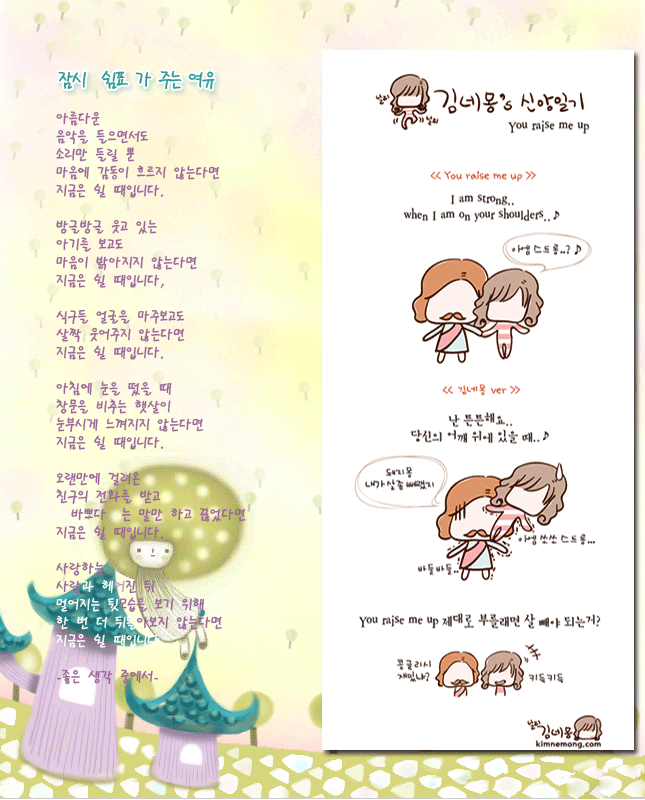 잠시 쉼표 가 주는 여유
아름다운
음악을 들으면서도
소리만 들릴 뿐
마음에 감동이 흐르지 않는다면
지금은 쉴 때입니다.
방글방글 웃고 있는
아기를 보고도
마음이 밝아지지 않는다면
지금은 쉴 때입니다,
식구들 얼굴을 마주보고도
살짝 웃어주지 않는다면
지금은 쉴 때입니다.
아침에 눈을 떴을 때
창문을 비추는 햇살이
눈부시게 느껴지지 않는다면
지금은 쉴 때입니다.
오랜만에 걸려온
친구의 전화를 받고
바쁘다 는 말만 하고 끊었다면
지금은 쉴 때입니다.
사랑하는
사람과 헤어진 뒤
멀어지는 뒷모습을 보기 위해
한 번 더 뒤돌아보지 않는다면
지금은 쉴 때입니다
-좋은 생각 중에서-
날리
날리
김네몽's 신앙일기
You raise me up
<< You raise me up >>
I am strong..
when I am on your shoulders..♪
아엠 스트롱..?♪
<< 김네몽 ver >>
난 튼튼해요..
당신의 어깨 위에 있을 때..♪
돼지몽
내가 살 좀 빼랬지
아엠 쏘쏘 스트롱...
바들바들..
You raise me up 제대로 부를래면 살 빼야 되는거?
콩글리시
재밌냐?
키득키득
날리 김네몽
kimnemong.com